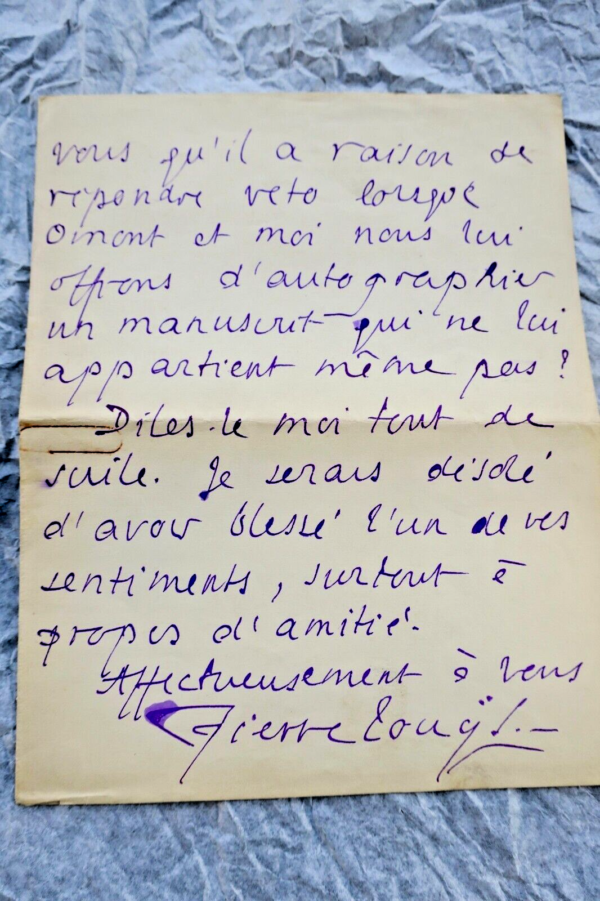 vous qu'il a raison de
répondre veto lorsque
Omont et moi nous lui
offrons d'autographier
un manuscrit qui ne lui
appartient même pas ?
Dites-le moi tout de
suite. Je serais désolé
d'avoir blessé l'un de vos
sentiments, surtout à
propos d'amitié.
Affectueusement à vous
Pierre Louÿs.-